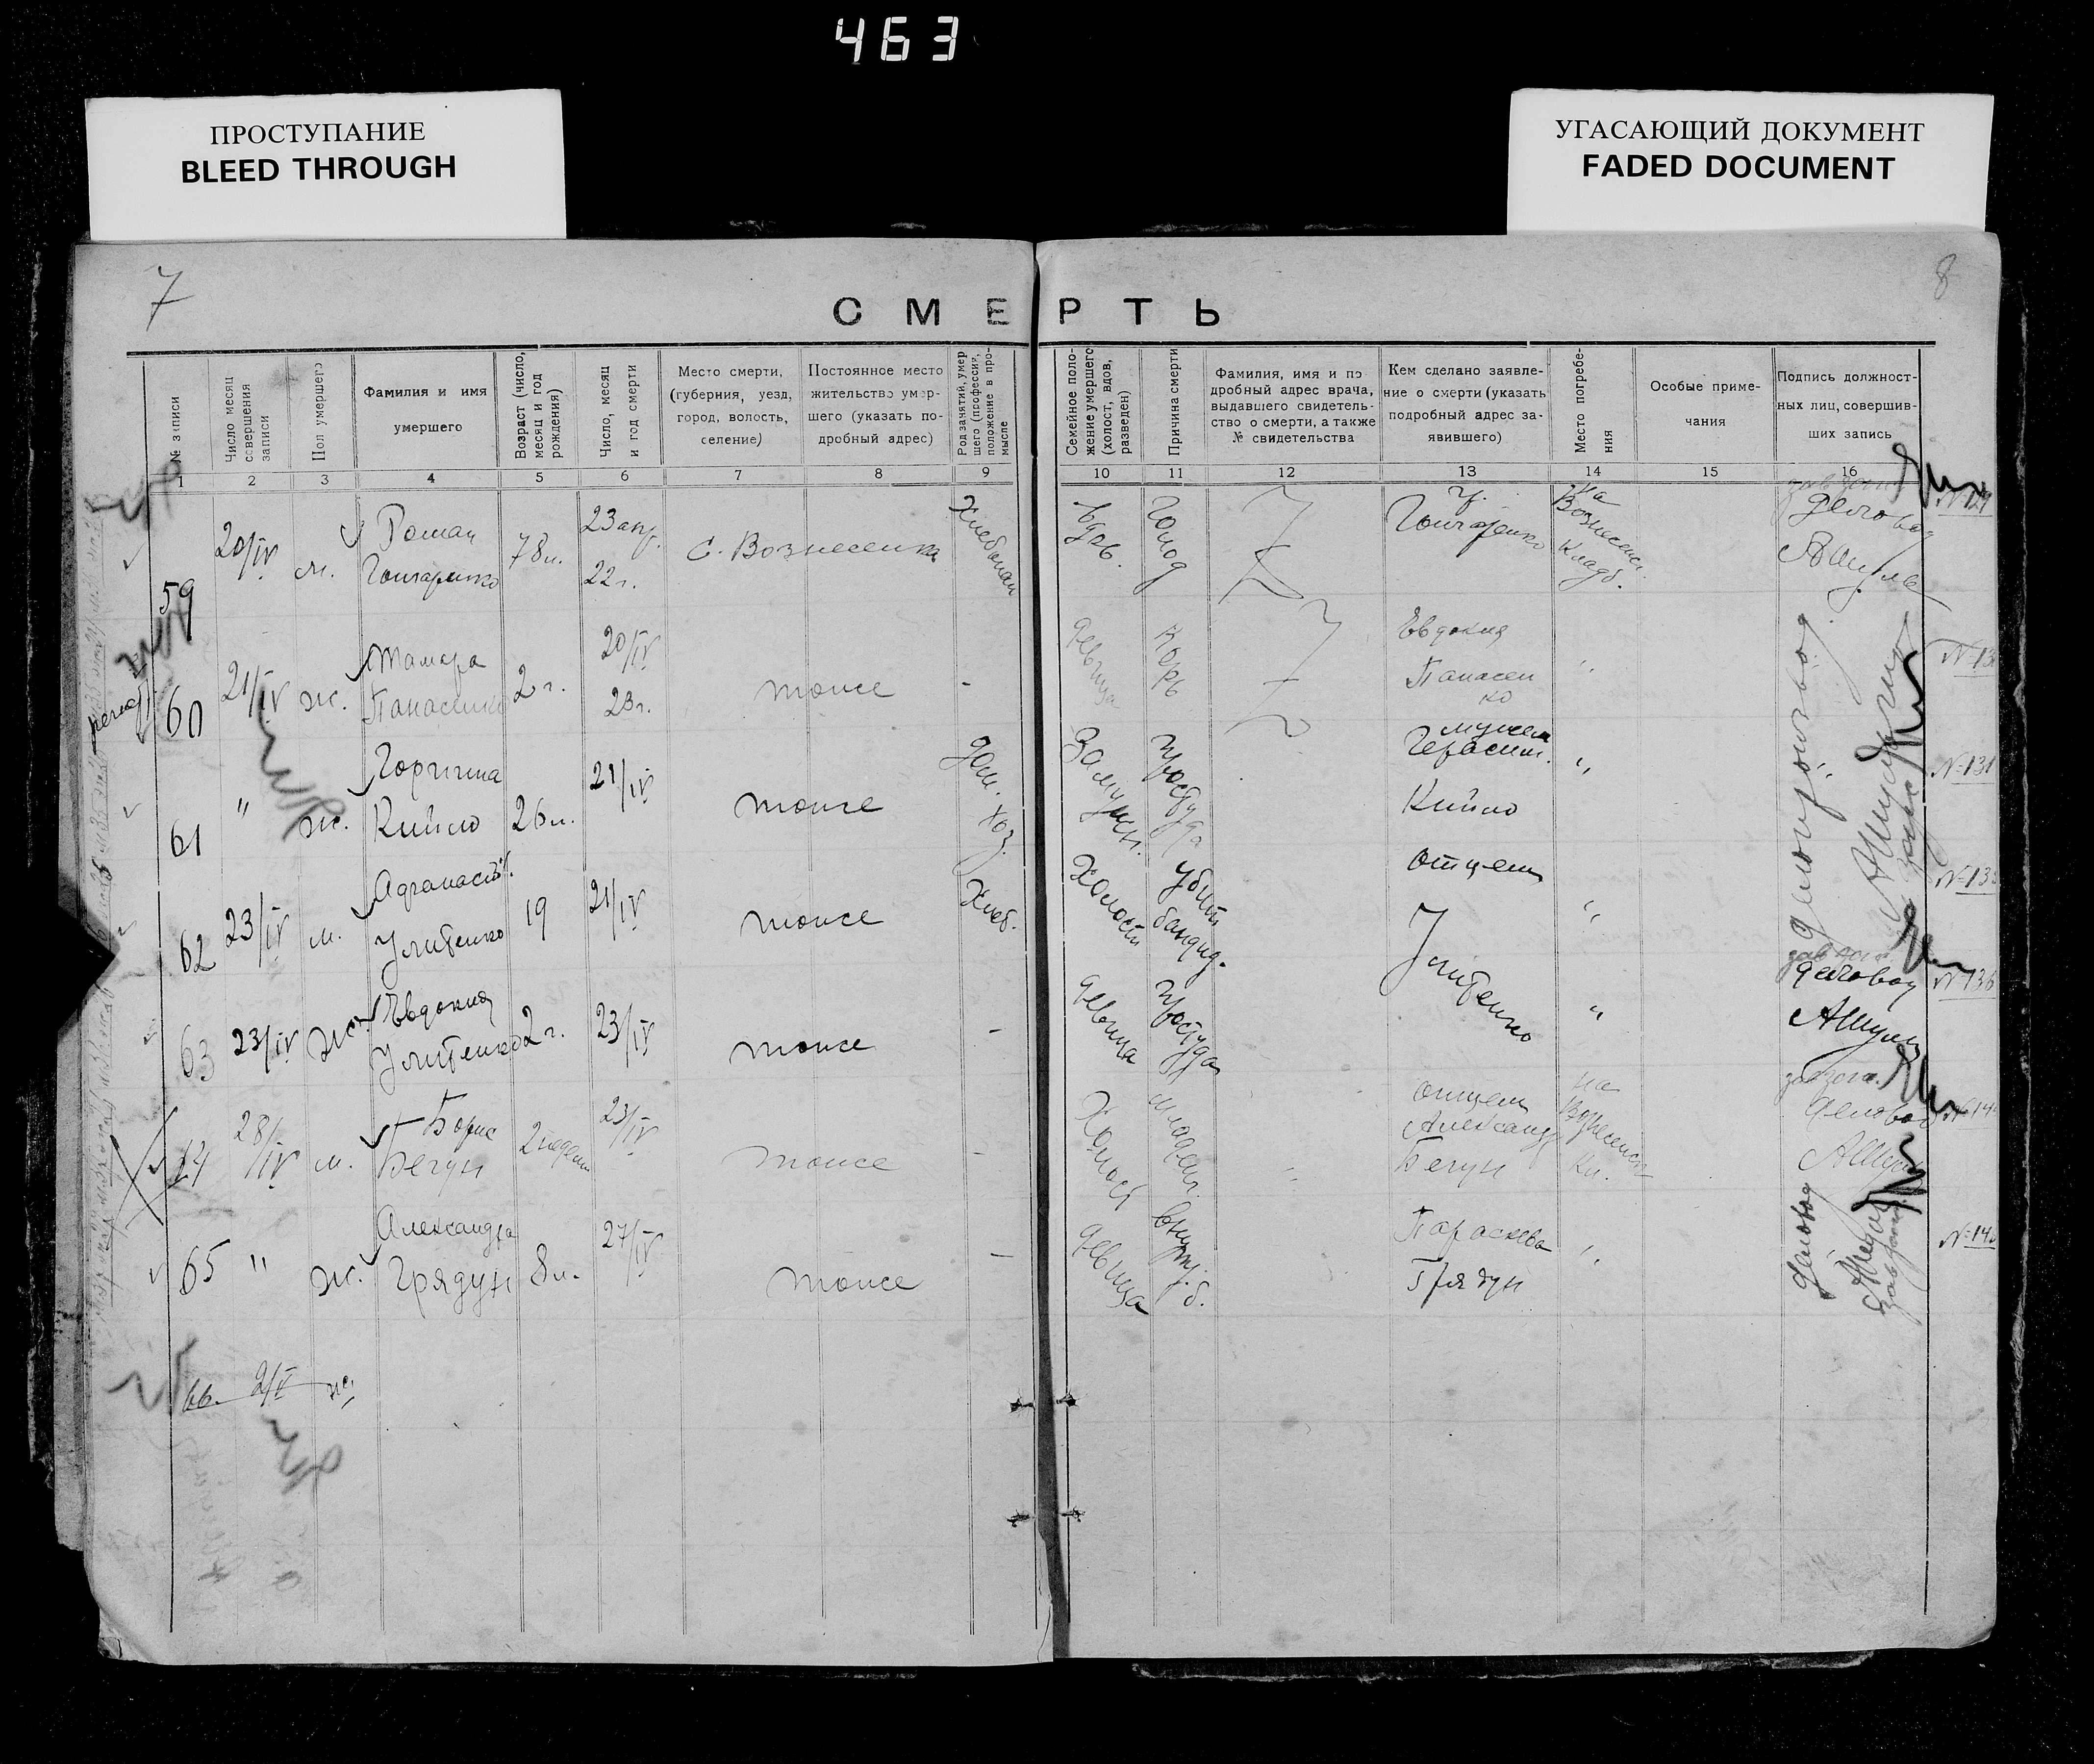 463
ПРОСТУПАНИЕ
BLEED THROUGH
УГАСАЮЩИЙ ДОКУМЕНТ
FADED DOCUMENT
7
8
СМЕРТЬ
№ записи
Число месяц совершения записи
Пол умершего
Фамилия и имя умершего
Возраст (число, месяц и год рождения)
Число, месяц и год смерти
Место смерти, (губерния, уезд, город, волость, селение)
Постоянное место жительство умершего (указать подробный адрес)
Род занятий, умершего (профессия, положение в промысле
Семейное положение умершего (холост, вдов, разведен)
Причина смерти
Фамилия, имя и подробный адрес врача, выдавшего свидетельство о смерти, а также № свидетельства
Кем сделано заявление о смерти (указать подробный адрес заявившего)
Место погребения
Особые примечания
Подпись должностных лиц, совершивших запись
1 2 3 4 5 6 7 8 9 10 11 12 13 14 15 16
59 20/IV м. Роман Гончаренко 78л. 23 апр. 22г. с. Вознесенка Хлебопаш вдов. Голод гр. Гончаренко на Вознесенс. Кладб. Деловод №129
60 21/IV ж. Тамара Панасенко 2г. 20/IV 23г. тоже - девица Корь Евдокия Панасенко "
61 " ж. Горпина Кийло 26л. 21/IV тоже дом. хоз. Замужн. простуда мужем Герасим. Кийло " Делопроизвод №131
62 23/IV м. Афанасий Улитенко 19 21/IV тоже Хлеб. Холост Убит бандид. отцем Улитенко "
63 23/IV ж. Евдокия Улитенко 2г. 23/IV тоже - девица простуда " деловод №136
64 28/IV м. Борис Бегун 2 недели 23/IV тоже - Холост младен. отцем Александр Бегун на Вознесенск. Кл. Деловод
65 " ж. Александра Грядун 8л. 27/IV тоже - девица Внутр. б. Параскева Грядун " деловод
66. 2/V ж.